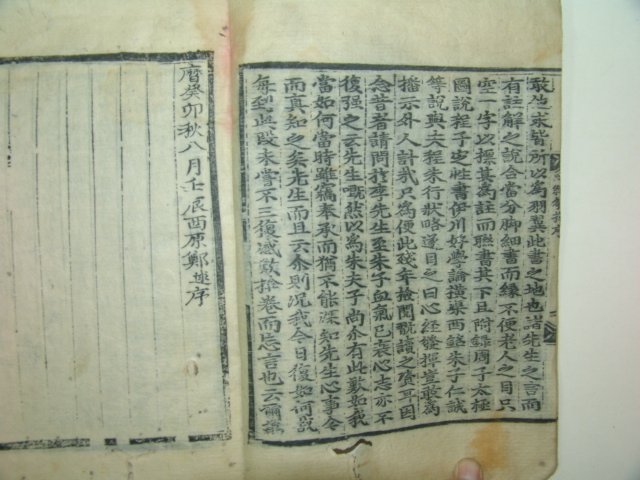 敢些求皆所以為羽翼此書之地也諸先生之言而
有註解之說合當分脚細書而緣不便老人之目只
空一字以標其為註而聯書其下且附錄周子太極
圖說程子定性書伊川好學論橫渠西銘朱子仁說
等說與夫程朱行狀略遂目之曰心經發揮豈敢為
播示外人計我只為便此殘年撿閱翫讀之資耳因
念昔者請問扵李先生至朱子血氣已衰心志亦不
復强之云先生嘅然以為朱夫子尚介有此歎如我
當如何當時雖竊奉承而猶不能深知先生心事今
而真知之矣先生而且云介則况我今日復如何哉
每到此段未嘗不三復感歎捨卷而忘言也云爾萬
曆癸卯秋八月壬辰西原鄭逑序